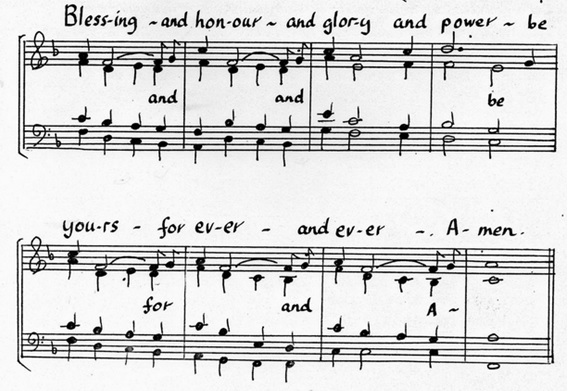 Bless-ing ~ and hon-our ~ and glor-y and power ~ be
and and be
you-rs - for ev-er - and ev-er -. A- men.
for and A ~